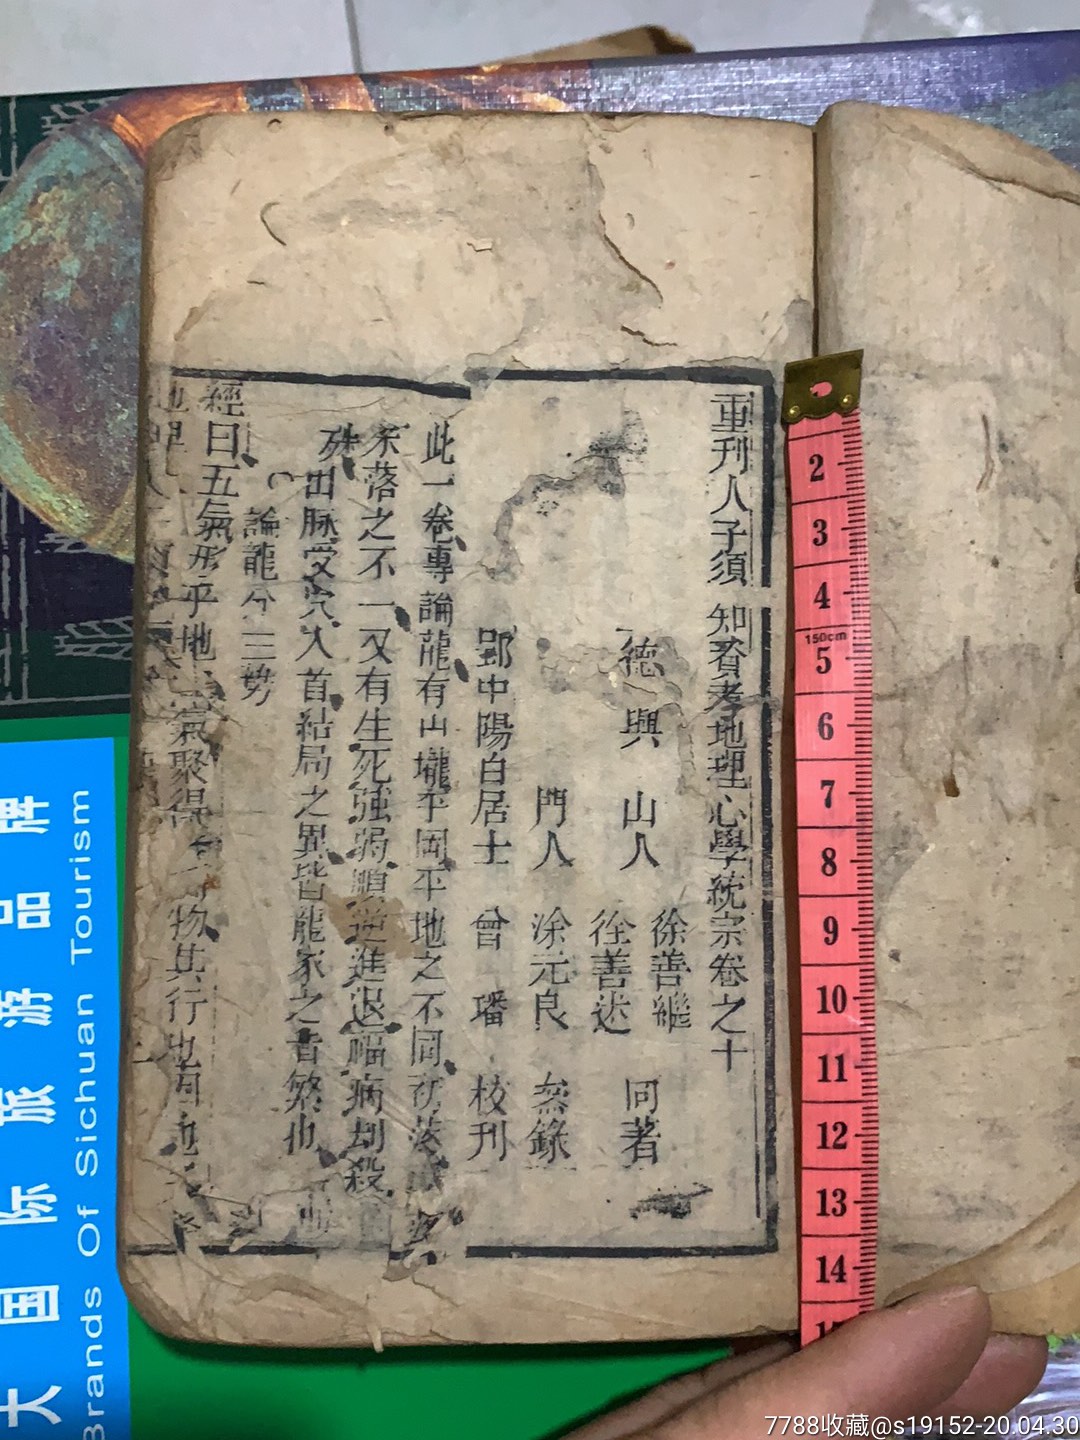 重刊人子須知資孝地理心學統宗卷之十
德興 山人 徐善繼
徐善述 同著
門人 涂元良 叅錄
郢中陽白居士 曾璠 校刊
此一卷專論龍有山壠平岡平地之不同
落之不一又有生死強弱順逆進退福病刦殺
出脉受穴入首結局之異皆龍家之
論龍分三势
經曰五氣形乎地 氣聚得 物其行也因地
2
3
4
150cm
5
6
7
8
9
10
11
12
13
14
大国际旅游品牌
Brands Of Sichuan Tourism
7788收藏@s19152-20.04.30